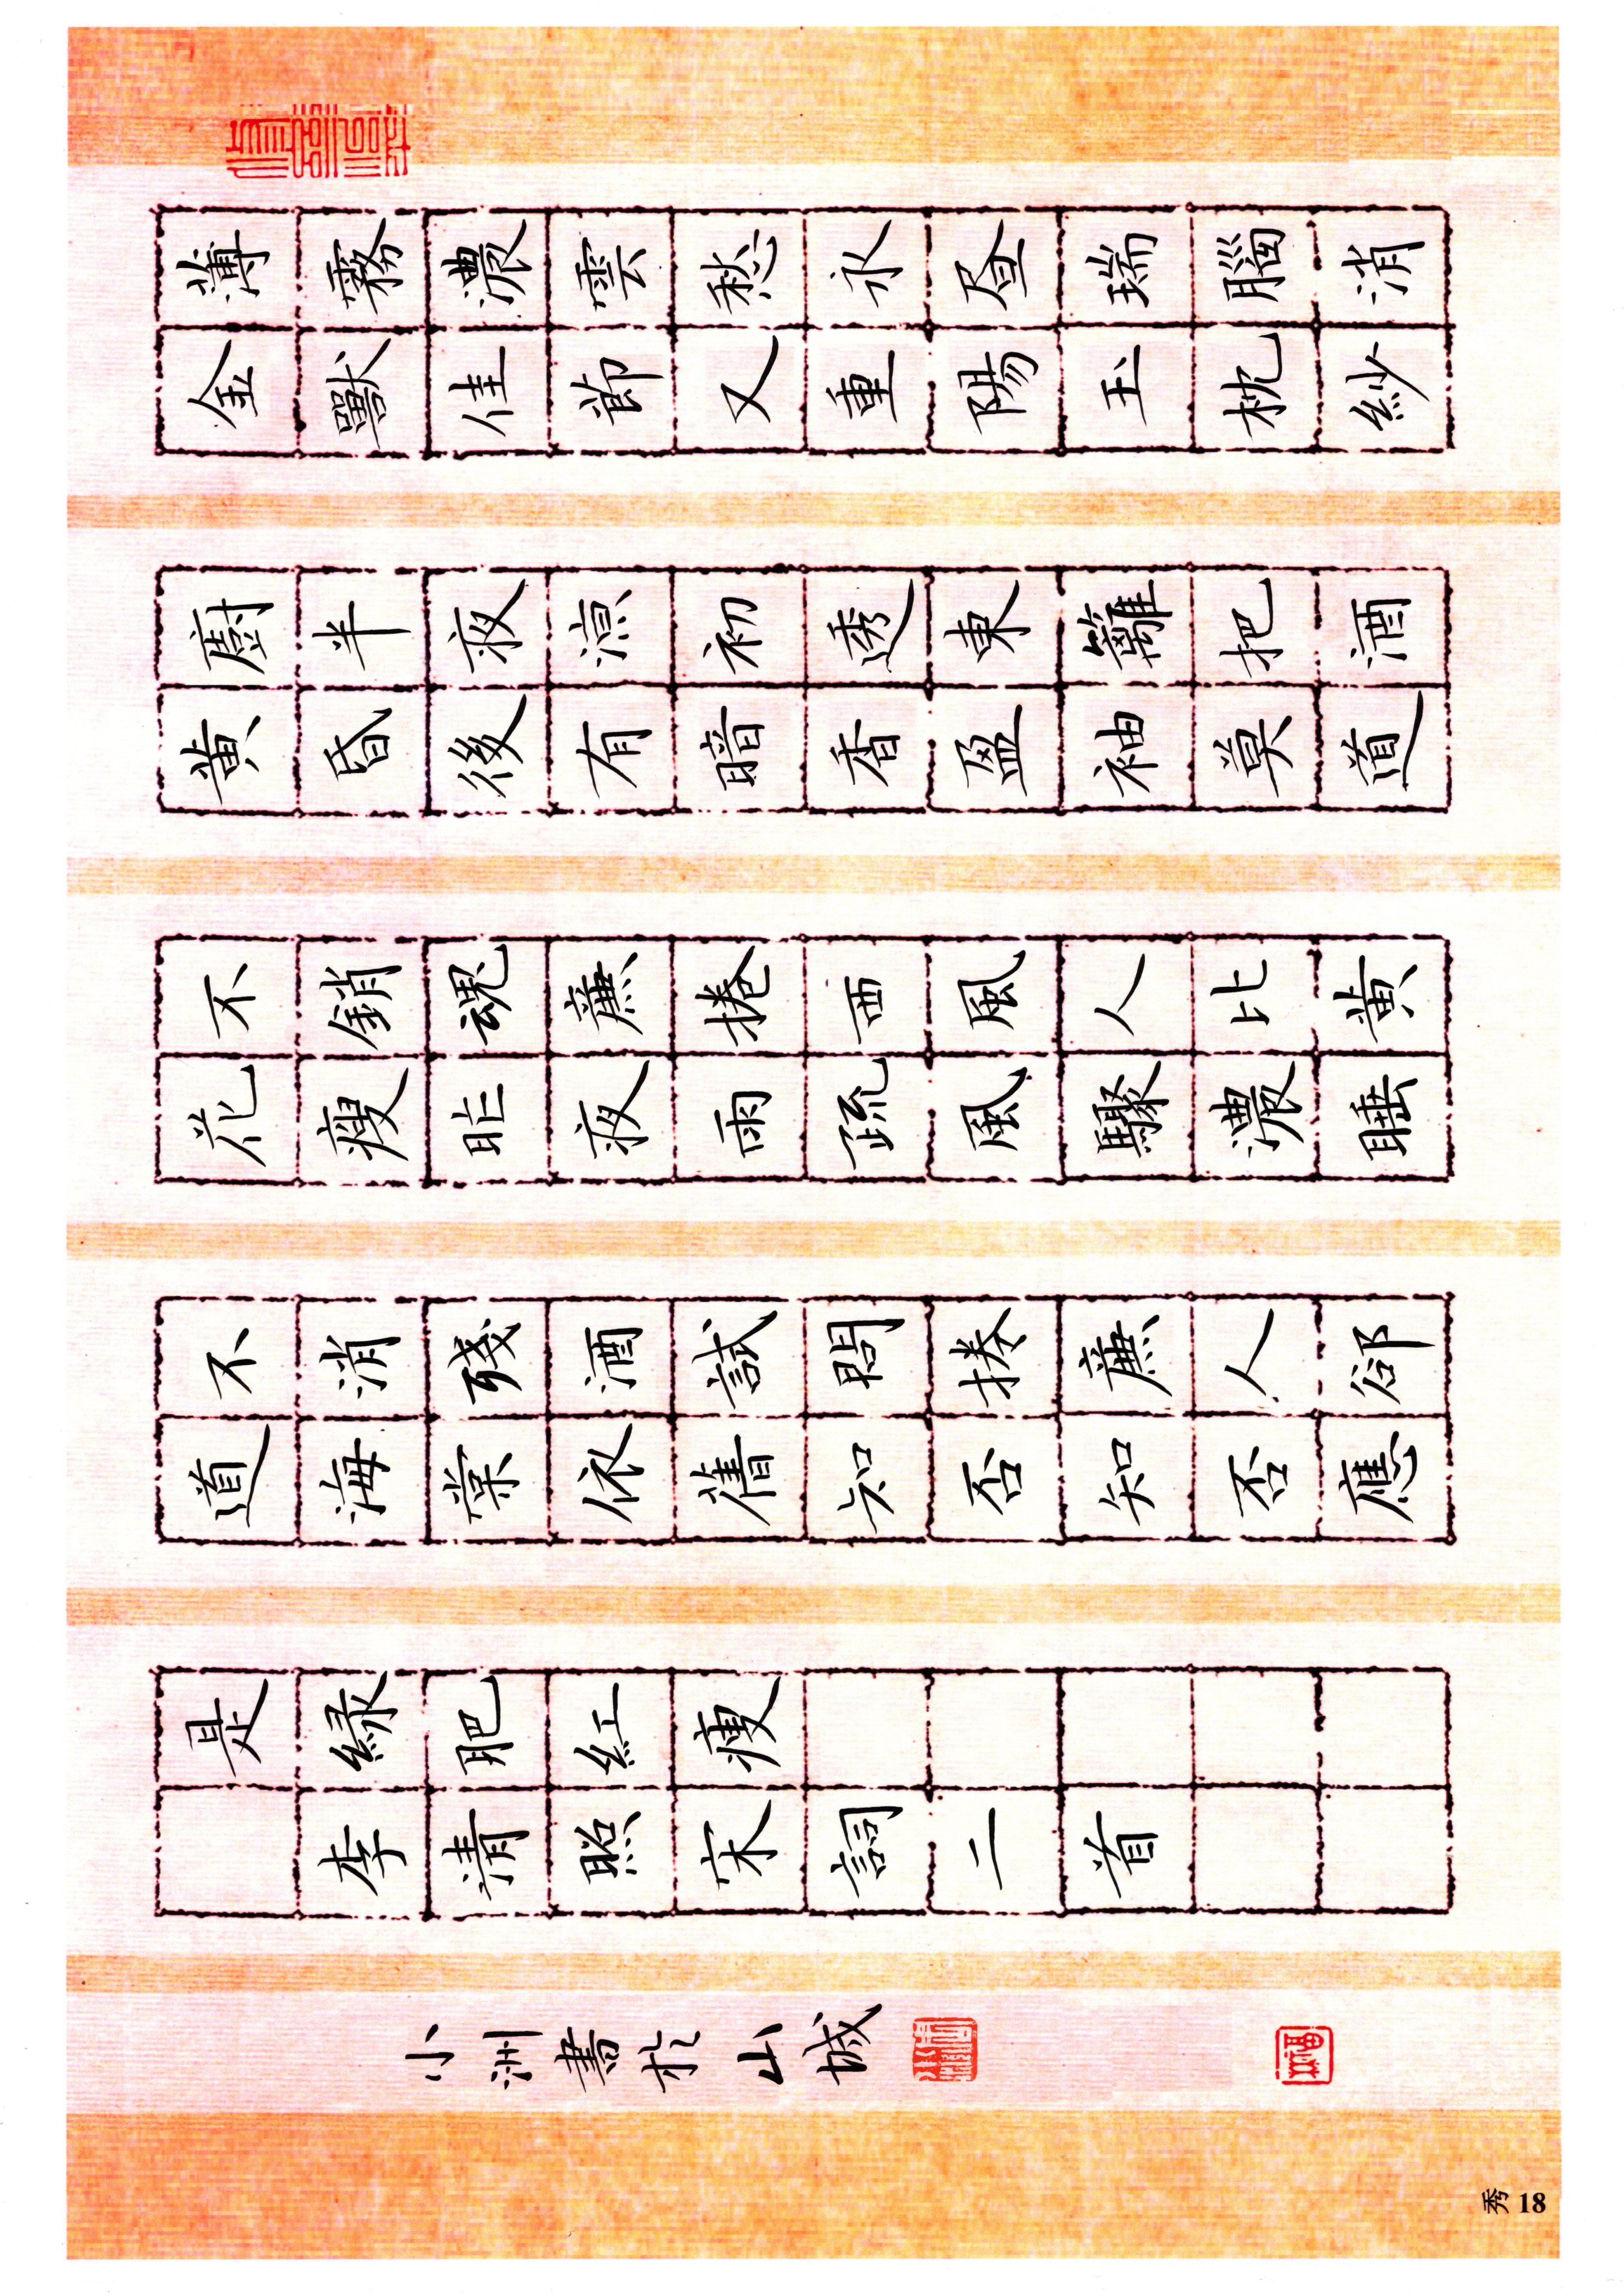 薄霧濃雲愁永昼瑞腦消
金獸佳節又重陽玉枕紗
廚半夜涼初透東籬把酒
黄昏後有暗香盈袖莫道
不銷魂廉捲西風人比黄
花瘦昨夜雨疏風驟濃睡
不消殘酒試問捲廉人卻
道海棠依舊知否知否應
是緑肥紅瘦
李清照宋詞二首
小洲書於山城
秀 18